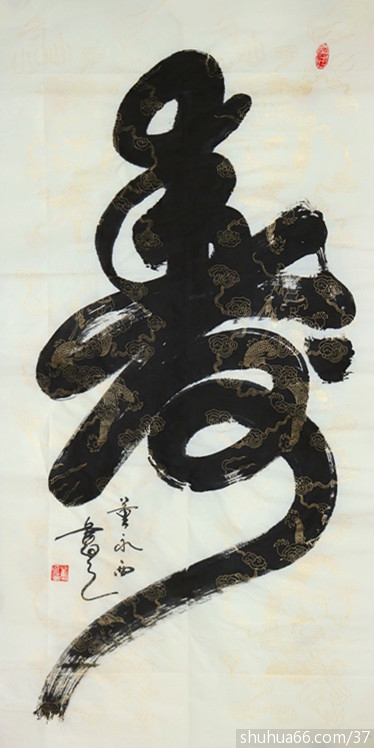 寿
董永西
书之
shuhua66.com/37